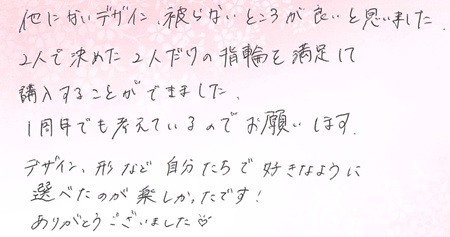 他にないデザイン、被らないところが良いと思いました.
2人で決めた2人だけの指輪を満足して
購入することができました.
1周年でも考えているのでお願いします.
デザイン、形など自分たちで好きなように
選べたのが楽しかったです!
ありがとうございました♡